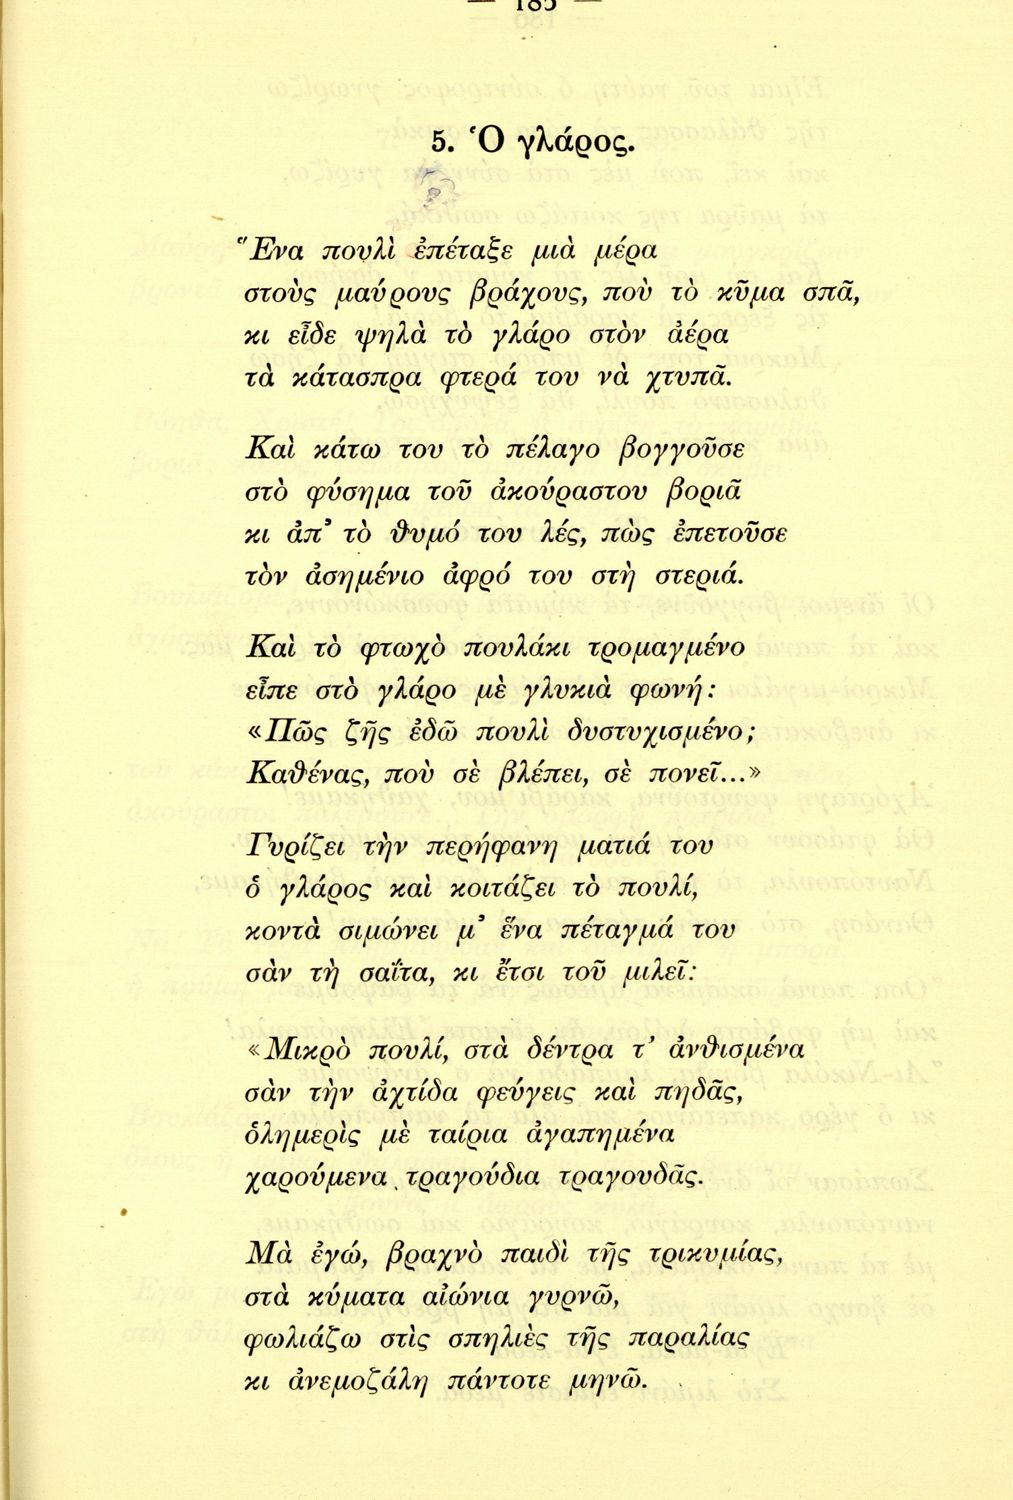 — 185 —
5. Ὁ γλάρος.
Ἕνα πουλὶ ἐπέταξε μιὰ μέρα
στοὺς μαύρους βράχους, ποὺ τὸ κῦμα σπᾶ,
κι εἶδε ψηλὰ τὸ γλάρο στὸν ἀέρα
τὰ κάτασπρα φτερά του νὰ χτυπᾶ.
Καὶ κάτω του τὸ πέλαγο βογγοῦσε
στὸ φύσημα τοῦ ἀκούραστου βοριᾶ
κι ἀπ' τὸ θυμό του λές, πὼς ἐπετοῦσε
τὸν ἀσημένιο ἀφρό του στὴ στεριά.
Καὶ τὸ φτωχὸ πουλάκι τρομαγμένο
εἶπε στὸ γλάρο μὲ γλυκιὰ φωνή:
«Πῶς ζῆς ἐδῶ πουλὶ δυστυχισμένο;
Καθένας, ποὺ σὲ βλέπει, σὲ πονεῖ...»
Γυρίζει τὴν περήφανη ματιά του
ὁ γλάρος καὶ κοιτάζει τὸ πουλί,
κοντὰ σιμώνει μ' ἕνα πέταγμά του
σὰν τὴ σαΐτα, κι ἔτσι τοῦ μιλεῖ:
«Μικρὸ πουλί, στὰ δέντρα τ' ἀνθισμένα
σὰν τὴν ἀχτίδα φεύγεις καὶ πηδᾶς,
ὁλημερὶς μὲ ταίρια ἀγαπημένα
χαρούμενα τραγούδια τραγουδᾶς.
Μὰ ἐγώ, βραχνὸ παιδὶ τῆς τρικυμίας,
στὰ κύματα αἰώνια γυρνῶ,
φωλιάζω στὶς σπηλιὲς τῆς παραλίας
κι ἀνεμοζάλη πάντοτε μηνῶ.